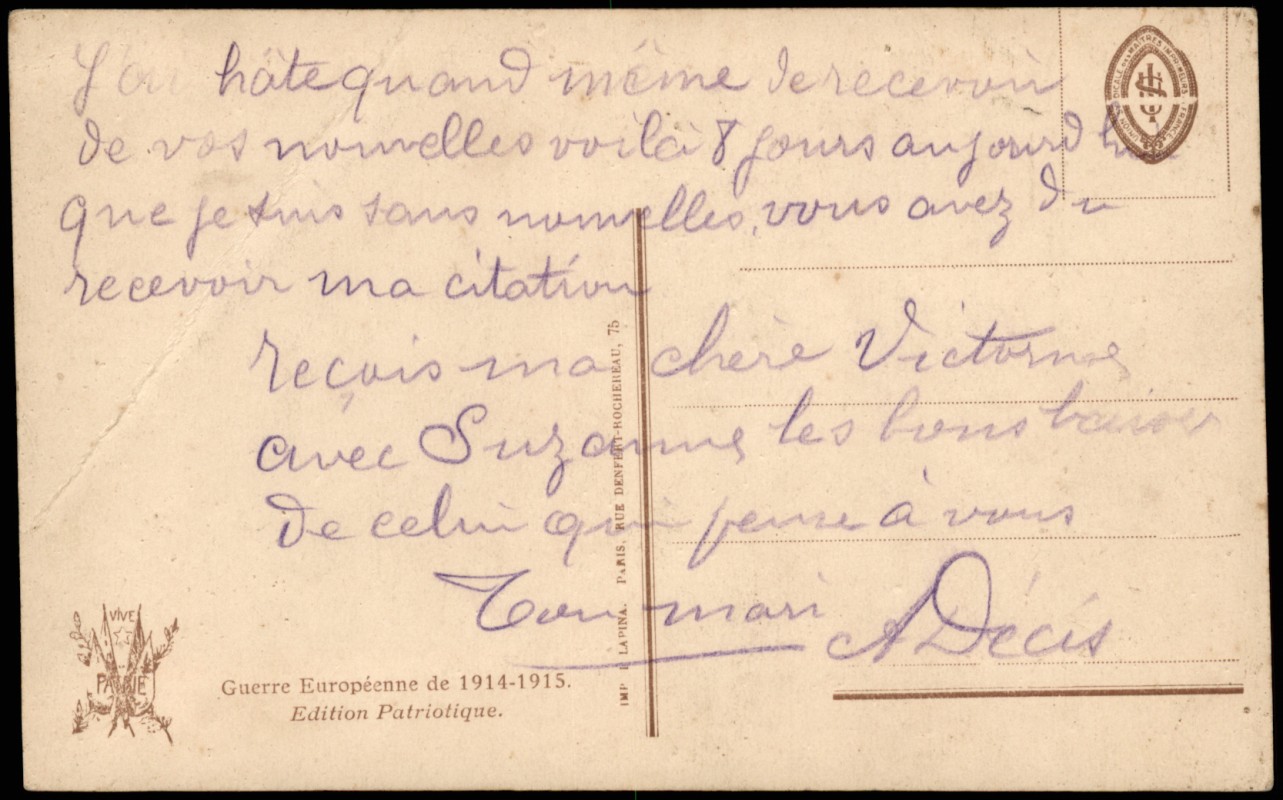 J'ai hâte quand même de recevoir
de vos nouvelles voilà 8 jours aujourd hui
que je suis sans nouvelles, vous avez du
recevoir ma citation
reçois ma chère Victorine
avec Suzanne les bons baisers
de celui qui pense à vous
Ton mari A Décis
IMP. LAPINA. PARIS, RUE DENFERT-ROCHEREAU, 75
VIVE
PATRIE
Guerre Européenne de 1914-1915.
Edition Patriotique.